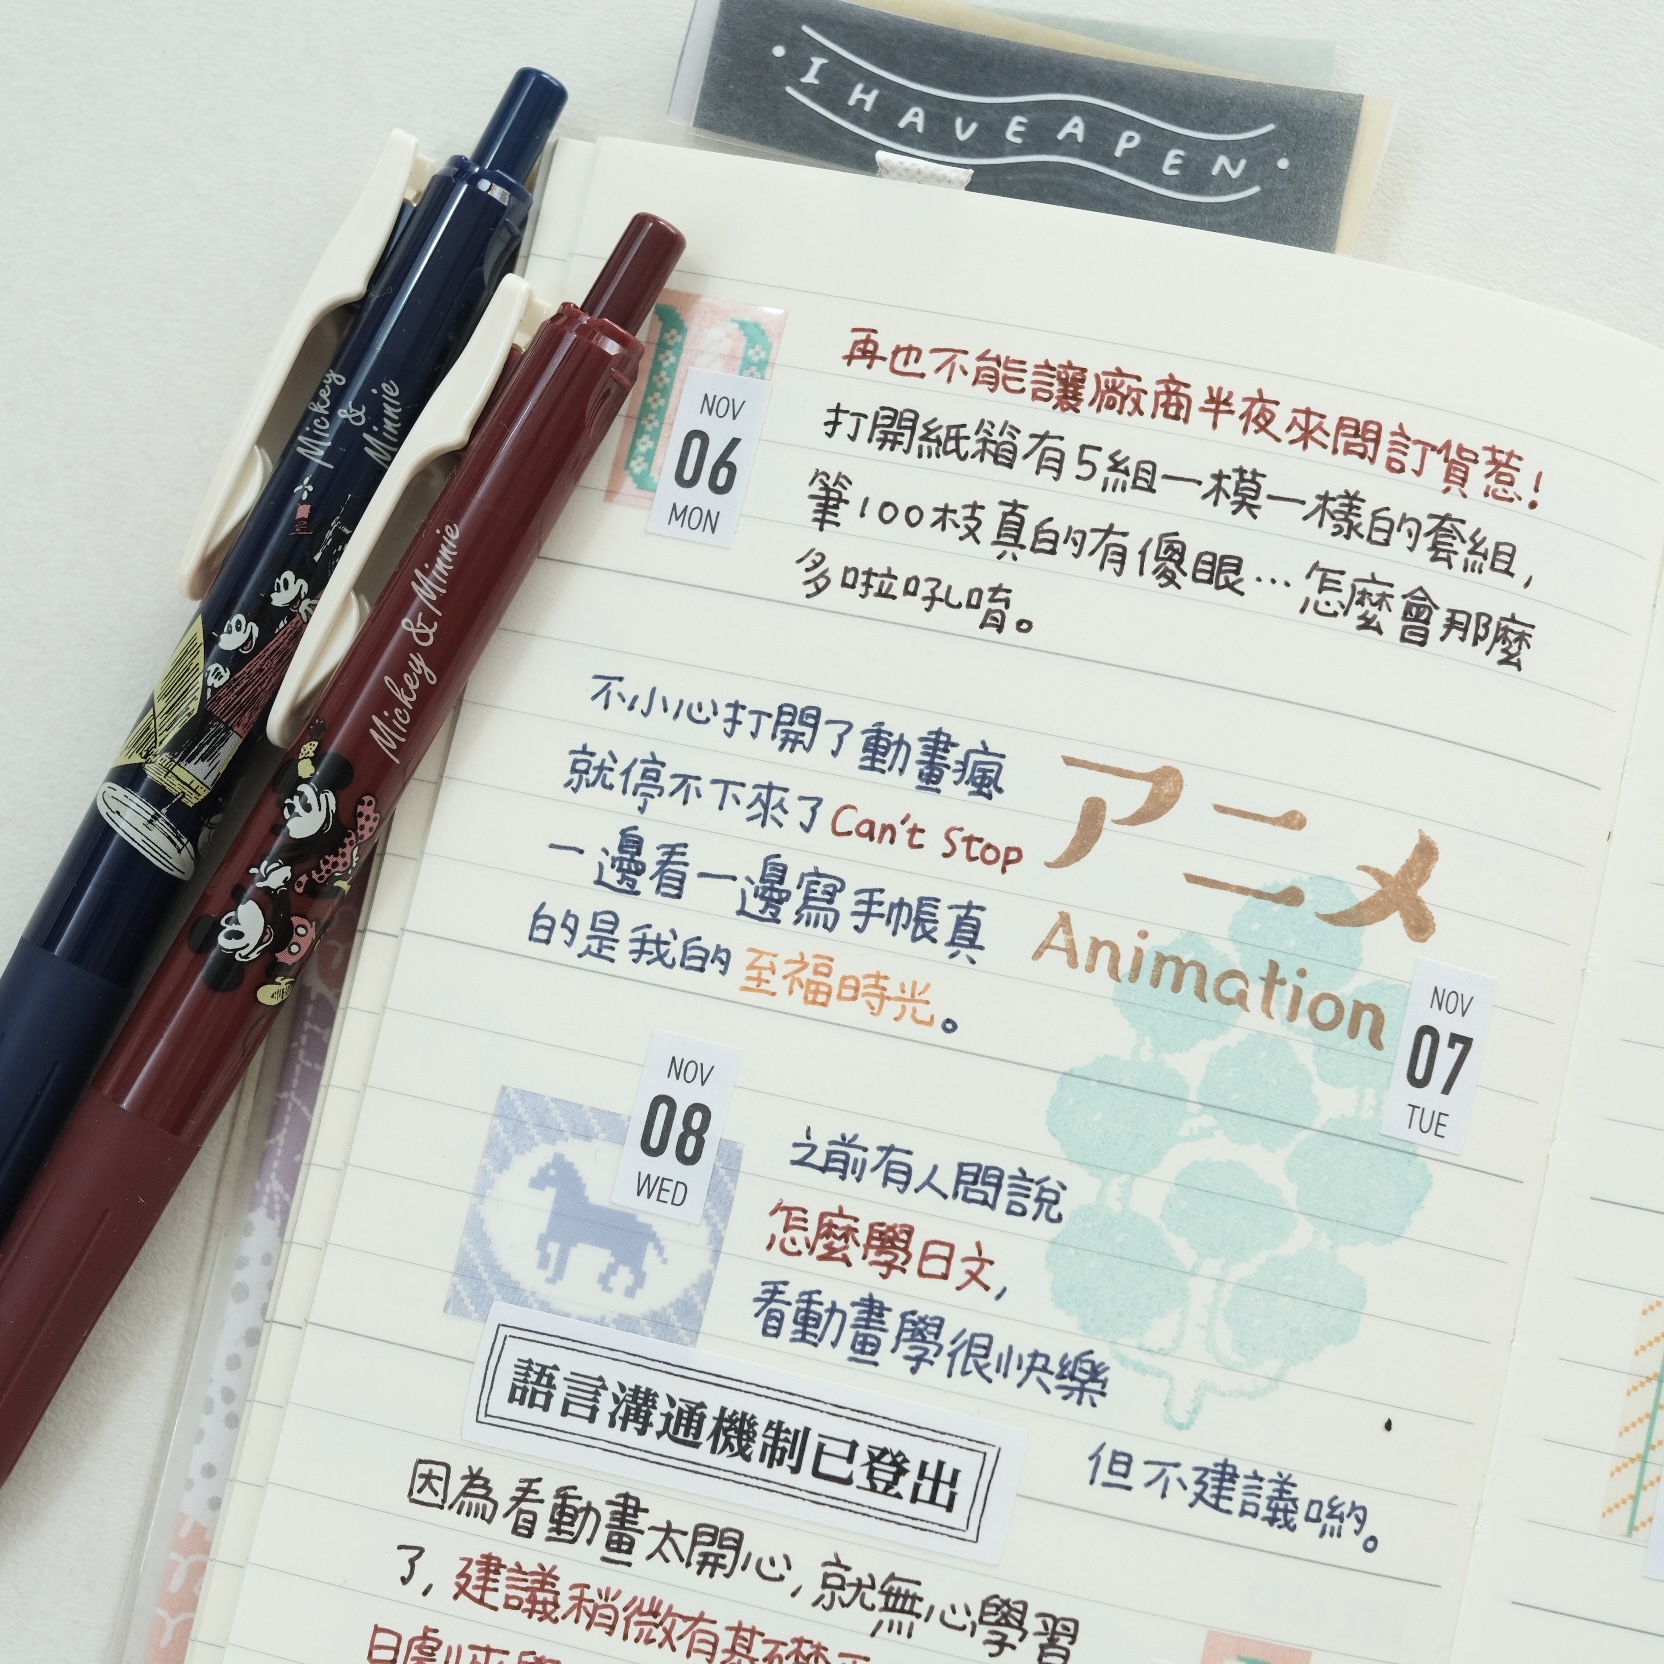 • I HAVE A PEN •
Mickey
&
Minnie
Mickey & Minnie
NOV
06
MON
再也不能讓廠商半夜來問訂貨惹!
打開紙箱有5組一模一樣的套組,
筆100枝真的有傻眼…怎麼會那麼
多啦吼唷。
不小心打開了動畫瘋
就停不下來了Can't Stop
一邊看一邊寫手帳真
的是我的至福時光。
アニメ
Animation
NOV
07
TUE
NOV
08
WED
之前有人問說
怎麼學日文,
看動畫學很快樂
語言溝通機制已登出
但不建議喲。
因為看動畫太開心,就無心學習
了,建議稍微有基礎
日劇來學